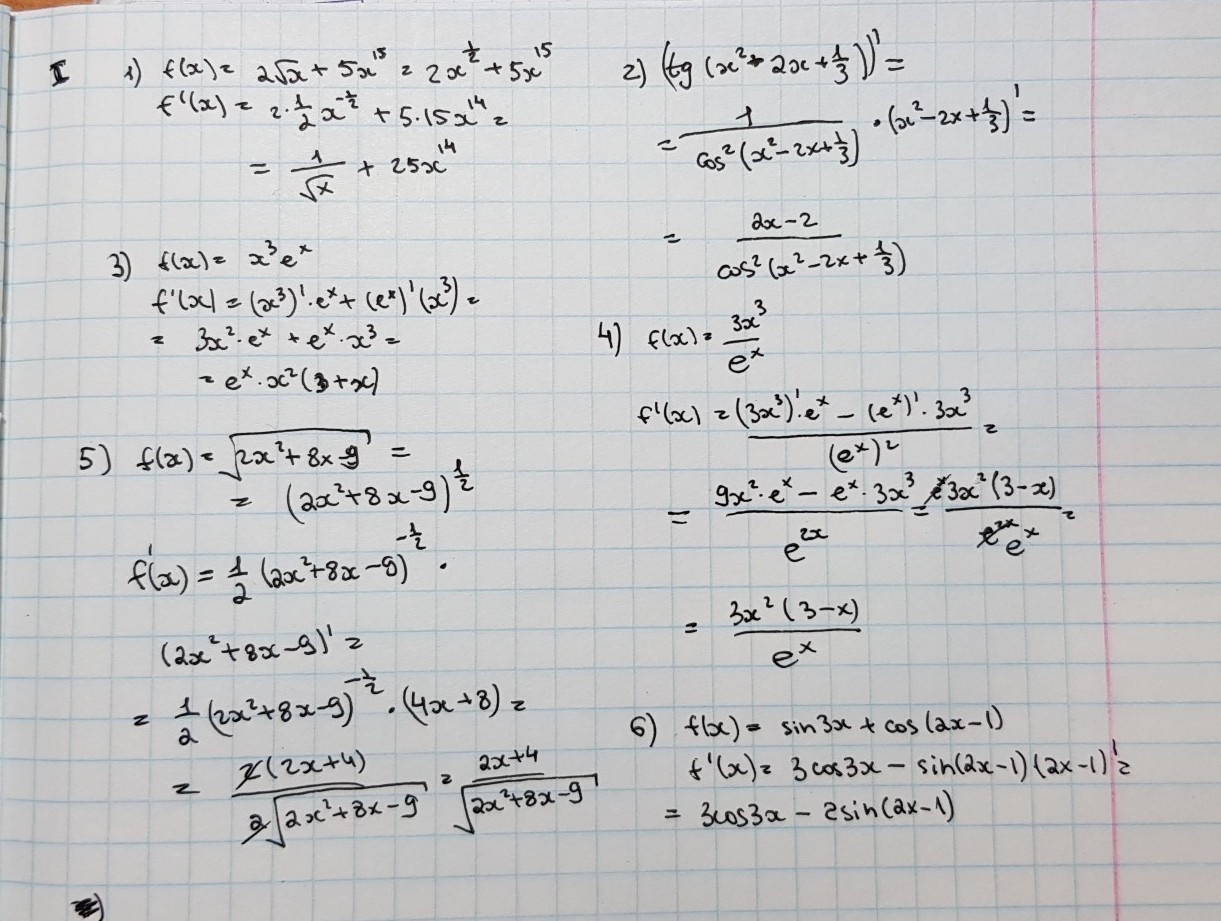 I 1) f(x) = 2√x + 5x¹⁵ = 2x^(1/2) + 5x¹⁵
f'(x) = 2·1/2 x^(-1/2) + 5·15x¹⁴ =
= 1/√x + 25x¹⁴
2) (tg (x² - 2x + 1/3))' =
= 1/cos²(x² - 2x + 1/3) · (x² - 2x + 1/3)' =
= (2x - 2)/cos²(x² - 2x + 1/3)
3) f(x) = x³eˣ
f'(x) = (x³)'·eˣ + (eˣ)'(x³) =
= 3x²·eˣ + eˣ·x³ =
= eˣ·x²(3 + x)
4) f(x) = 3x³/eˣ
f'(x) = ((3x³)'·eˣ - (eˣ)'·3x³)/(eˣ)² =
= (9x²·eˣ - eˣ·3x³)/e²ˣ = eˣ3x²(3 - x)/e²ˣ eˣ =
= 3x²(3 - x)/eˣ
5) f(x) = √(2x² + 8x - 9) =
= (2x² + 8x - 9)^(1/2)
f'(x) = 1/2 (2x² + 8x - 9)^(-1/2) ·
(2x² + 8x - 9)' =
= 1/2 (2x² + 8x - 9)^(-1/2) · (4x + 8) =
= 2(2x + 4)/2√(2x² + 8x - 9) = (2x + 4)/√(2x² + 8x - 9)
6) f(x) = sin3x + cos(2x - 1)
f'(x) = 3cos3x - sin(2x - 1)(2x - 1)' =
= 3cos3x - 2sin(2x - 1)